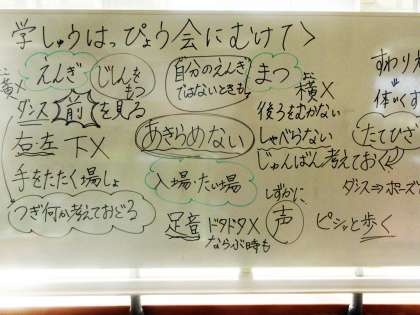 学しゅうはっぴょう会にむけて＞
横× えんぎ じしんをもつ
自分のえんぎではないときも
まつ 横×
すわりえ
ダンス 前 を見る
後ろをむかない
体くず
右・左 下×
あきらめない
しゃべらない
たてひざ
じゅんばん考えておく
手をたたく場しょ
入場・たい場
ダンス⇒ポーズ
つぎ何か考えておどる
しずかに
足音 ドタドタ× 声 ピシッと歩く
ならぶ時も